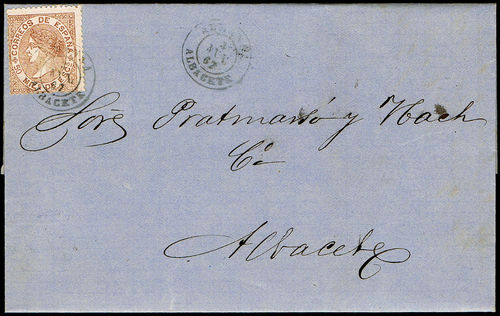 CORREOS DE ESPAÑA
ALBACETE
67
ALBACETE
Sores Pratmarsó y Hach
Cª
Albacete